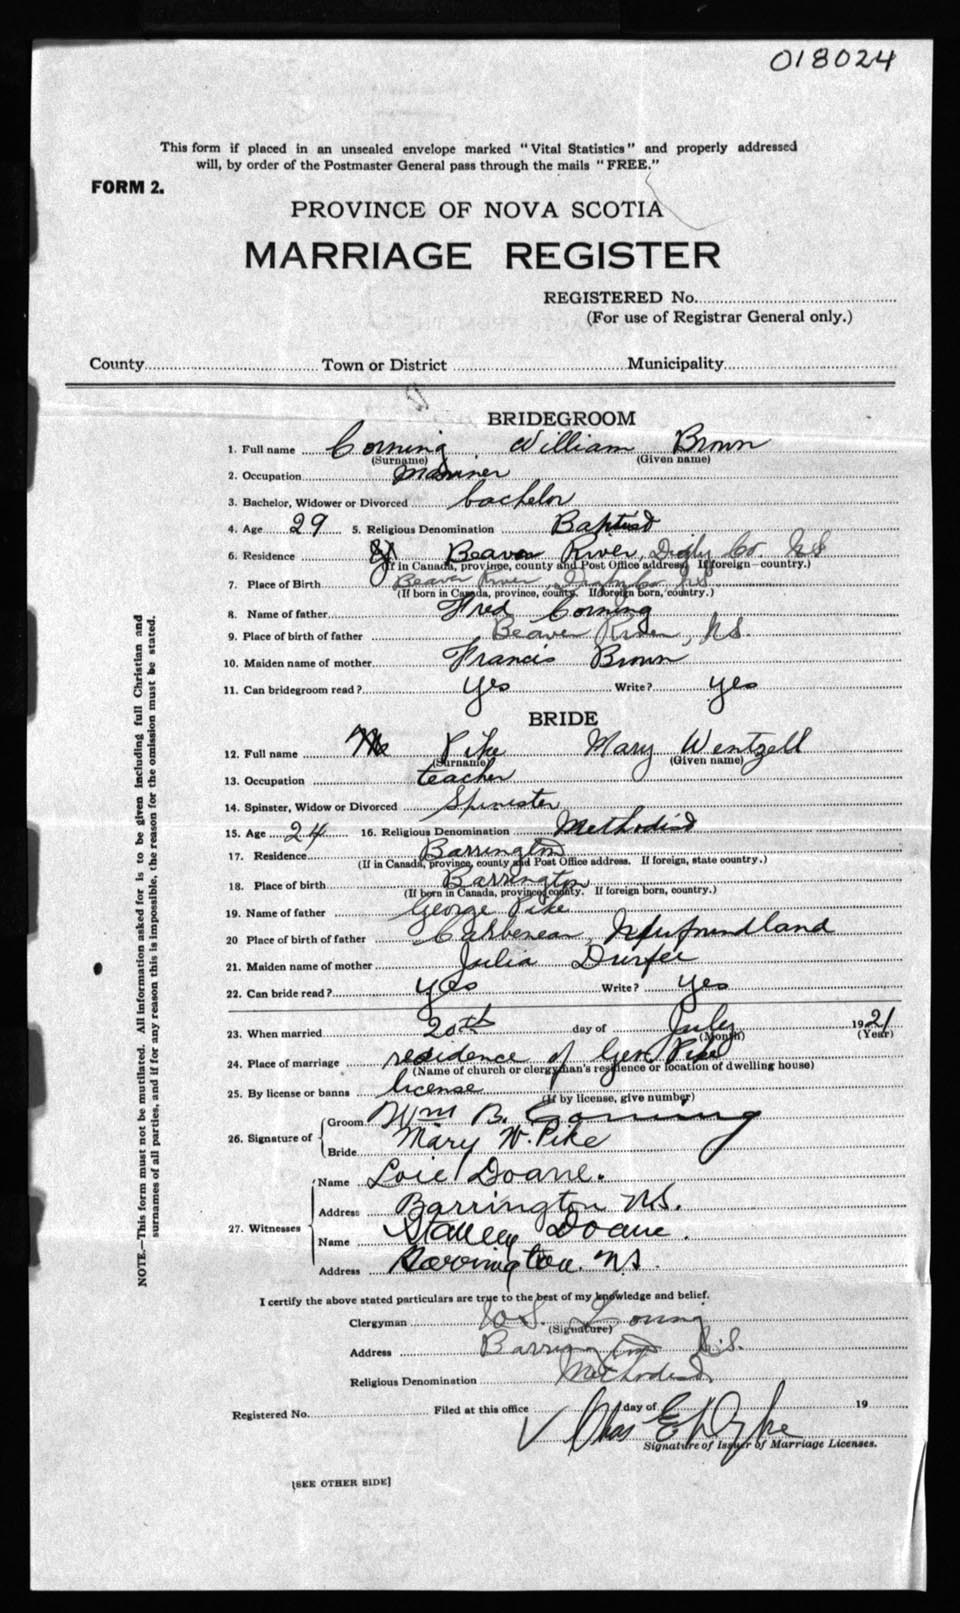 018024
This form if placed in an unsealed envelope marked "Vital Statistics" and properly addressed
will, by order of the Postmaster General pass through the mails "FREE."
FORM 2.
PROVINCE OF NOVA SCOTIA
MARRIAGE REGISTER
REGISTERED No.
(For use of Registrar General only.)
County Town or District Municipality
BRIDEGROOM
1. Full name Corning William Brown
(Surname) (Given name)
2. Occupation Mariner
3. Bachelor, Widower or Divorced bachelor
4. Age 29 5. Religious Denomination Baptist
6. Residence Beaver River, Digby Co. NS
(If in Canada, province, county and Post Office address. If foreign—country.)
7. Place of Birth Beaver River, Digby Co. NS
(If born in Canada, province, county. If foreign born, country.)
8. Name of father Fred Corning
9. Place of birth of father Beaver River, NS.
10. Maiden name of mother Francis Brown
11. Can bridegroom read? yes Write? yes
BRIDE
12. Full name Pike Mary Wentzell
(Surname) (Given name)
13. Occupation teacher
14. Spinster, Widow or Divorced Spinister
15. Age 24 16. Religious Denomination Methodist
17. Residence Barrington
(If in Canada, province, county and Post Office address. If foreign, state country.)
18. Place of birth Barrington
(If born in Canada, province, county. If foreign born, country.)
19. Name of father George Pike
20 Place of birth of father Carbenear, Newfoundland
21. Maiden name of mother Julia Durfee
22. Can bride read? yes Write? yes
23. When married 20th day of July 1921
(Month) (Year)
24. Place of marriage residence of Geo. Pike
(Name of church or clergyman's residence or location of dwelling house)
25. By license or banns license
(If by license, give number)
26. Signature of Groom Wm B. Corning
Bride Mary W. Pike
27. Witnesses Name Loie Doane.
Address Barrington N.S.
Name Stanley Doane.
Address Barrington. N.S.
I certify the above stated particulars are true to the best of my knowledge and belief.
Clergyman Young
(Signature)
Address Barrington N.S.
Religious Denomination Methodist
Registered No. Filed at this office day of 19
Chas E
Signature of Issuer of Marriage Licenses.
[SEE OTHER SIDE]
NOTE.—This form must not be mutilated. All information asked for is to be given including full Christian and
surnames of all parties, and if for any reason this is impossible, the reason for the omission must be stated.